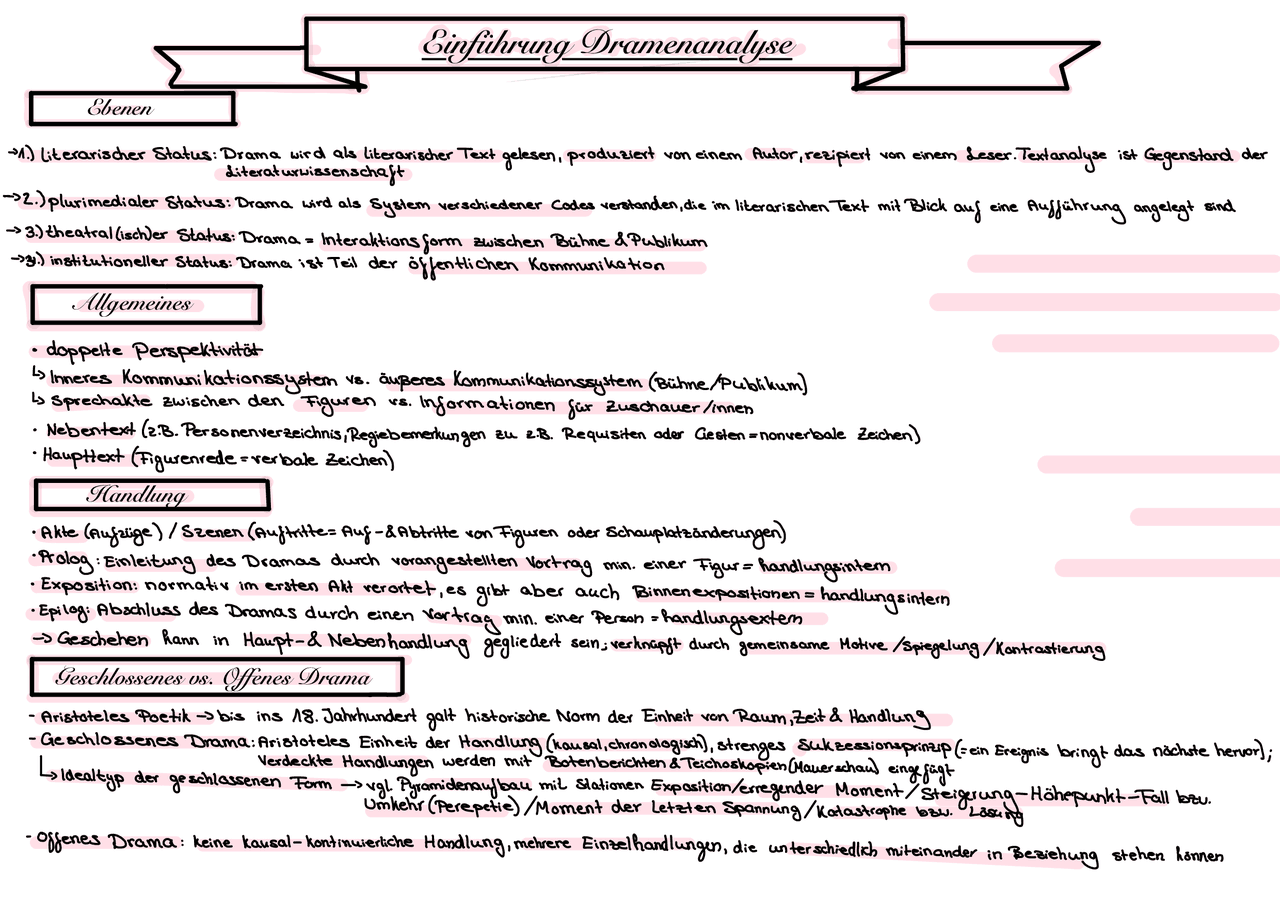 Einführung Dramenanalyse
Ebenen
→1.) Literarischer Status: Drama wird als literarischer Text gelesen, produziert von einem Autor, rezipiert von einem Leser. Textanalyse ist Gegenstand der
Literaturwissenschaft
→2.) plurimedialer Status: Drama wird als System verschiedener Codes verstanden, die im literarischen Text mit Blick auf eine Aufführung angelegt sind
→3.) theatral(isch)er Status: Drama = Interaktionsform zwischen Bühne & Publikum
→4.) institutioneller Status: Drama ist Teil der öffentlichen Kommunikation
Allgemeines
• doppelte Perspektivität
↳ Inneres Kommunikationssystem vs. äußeres Kommunikationssystem (Bühne/Publikum)
↳ Sprechakte zwischen den Figuren vs. Informationen für Zuschauer/innen
• Nebentext (z.B. Personenverzeichnis, Regiebemerkungen zu z.B. Requisiten oder Gesten = nonverbale Zeichen)
• Haupttext (Figurenrede = verbale Zeichen)
Handlung
• Akte (Aufzüge) / Szenen (Auftritte = Auf- & Abtritte von Figuren oder Schauplatzänderungen)
• Prolog: Einleitung des Dramas durch vorangestellten Vortrag min. einer Figur = handlungsintern
• Exposition: normativ im ersten Akt verortet, es gibt aber auch Binnenexpositionen = handlungsintern
• Epilog: Abschluss des Dramas durch einen Vortrag min. einer Person = handlungsextern
→ Geschehen kann in Haupt- & Nebenhandlung gegliedert sein; verknüpft durch gemeinsame Motive / Spiegelung / Kontrastierung
Geschlossenes vs. Offenes Drama
- Aristoteles Poetik → bis ins 18. Jahrhundert galt historische Norm der Einheit von Raum, Zeit & Handlung
- Geschlossenes Drama: Aristoteles Einheit der Handlung (kausal, chronologisch), strenges Sukzessionsprinzip (= ein Ereignis bringt das nächste hervor);
Verdeckte Handlungen werden mit Botenberichten & Teichoskopien (Mauerschau) eingefügt
↳ Idealtyp der geschlossenen Form → vgl. Pyramidenaufbau mit Stationen Exposition/erregender Moment/Steigerung-Höhepunkt-Fall bzw.
Umkehr (Perepetie) / Moment der letzten Spannung / Katastrophe bzw. Lösung
- Offenes Drama: keine kausal-kontinuierliche Handlung, mehrere Einzelhandlungen, die unterschiedlich miteinander in Beziehung stehen können